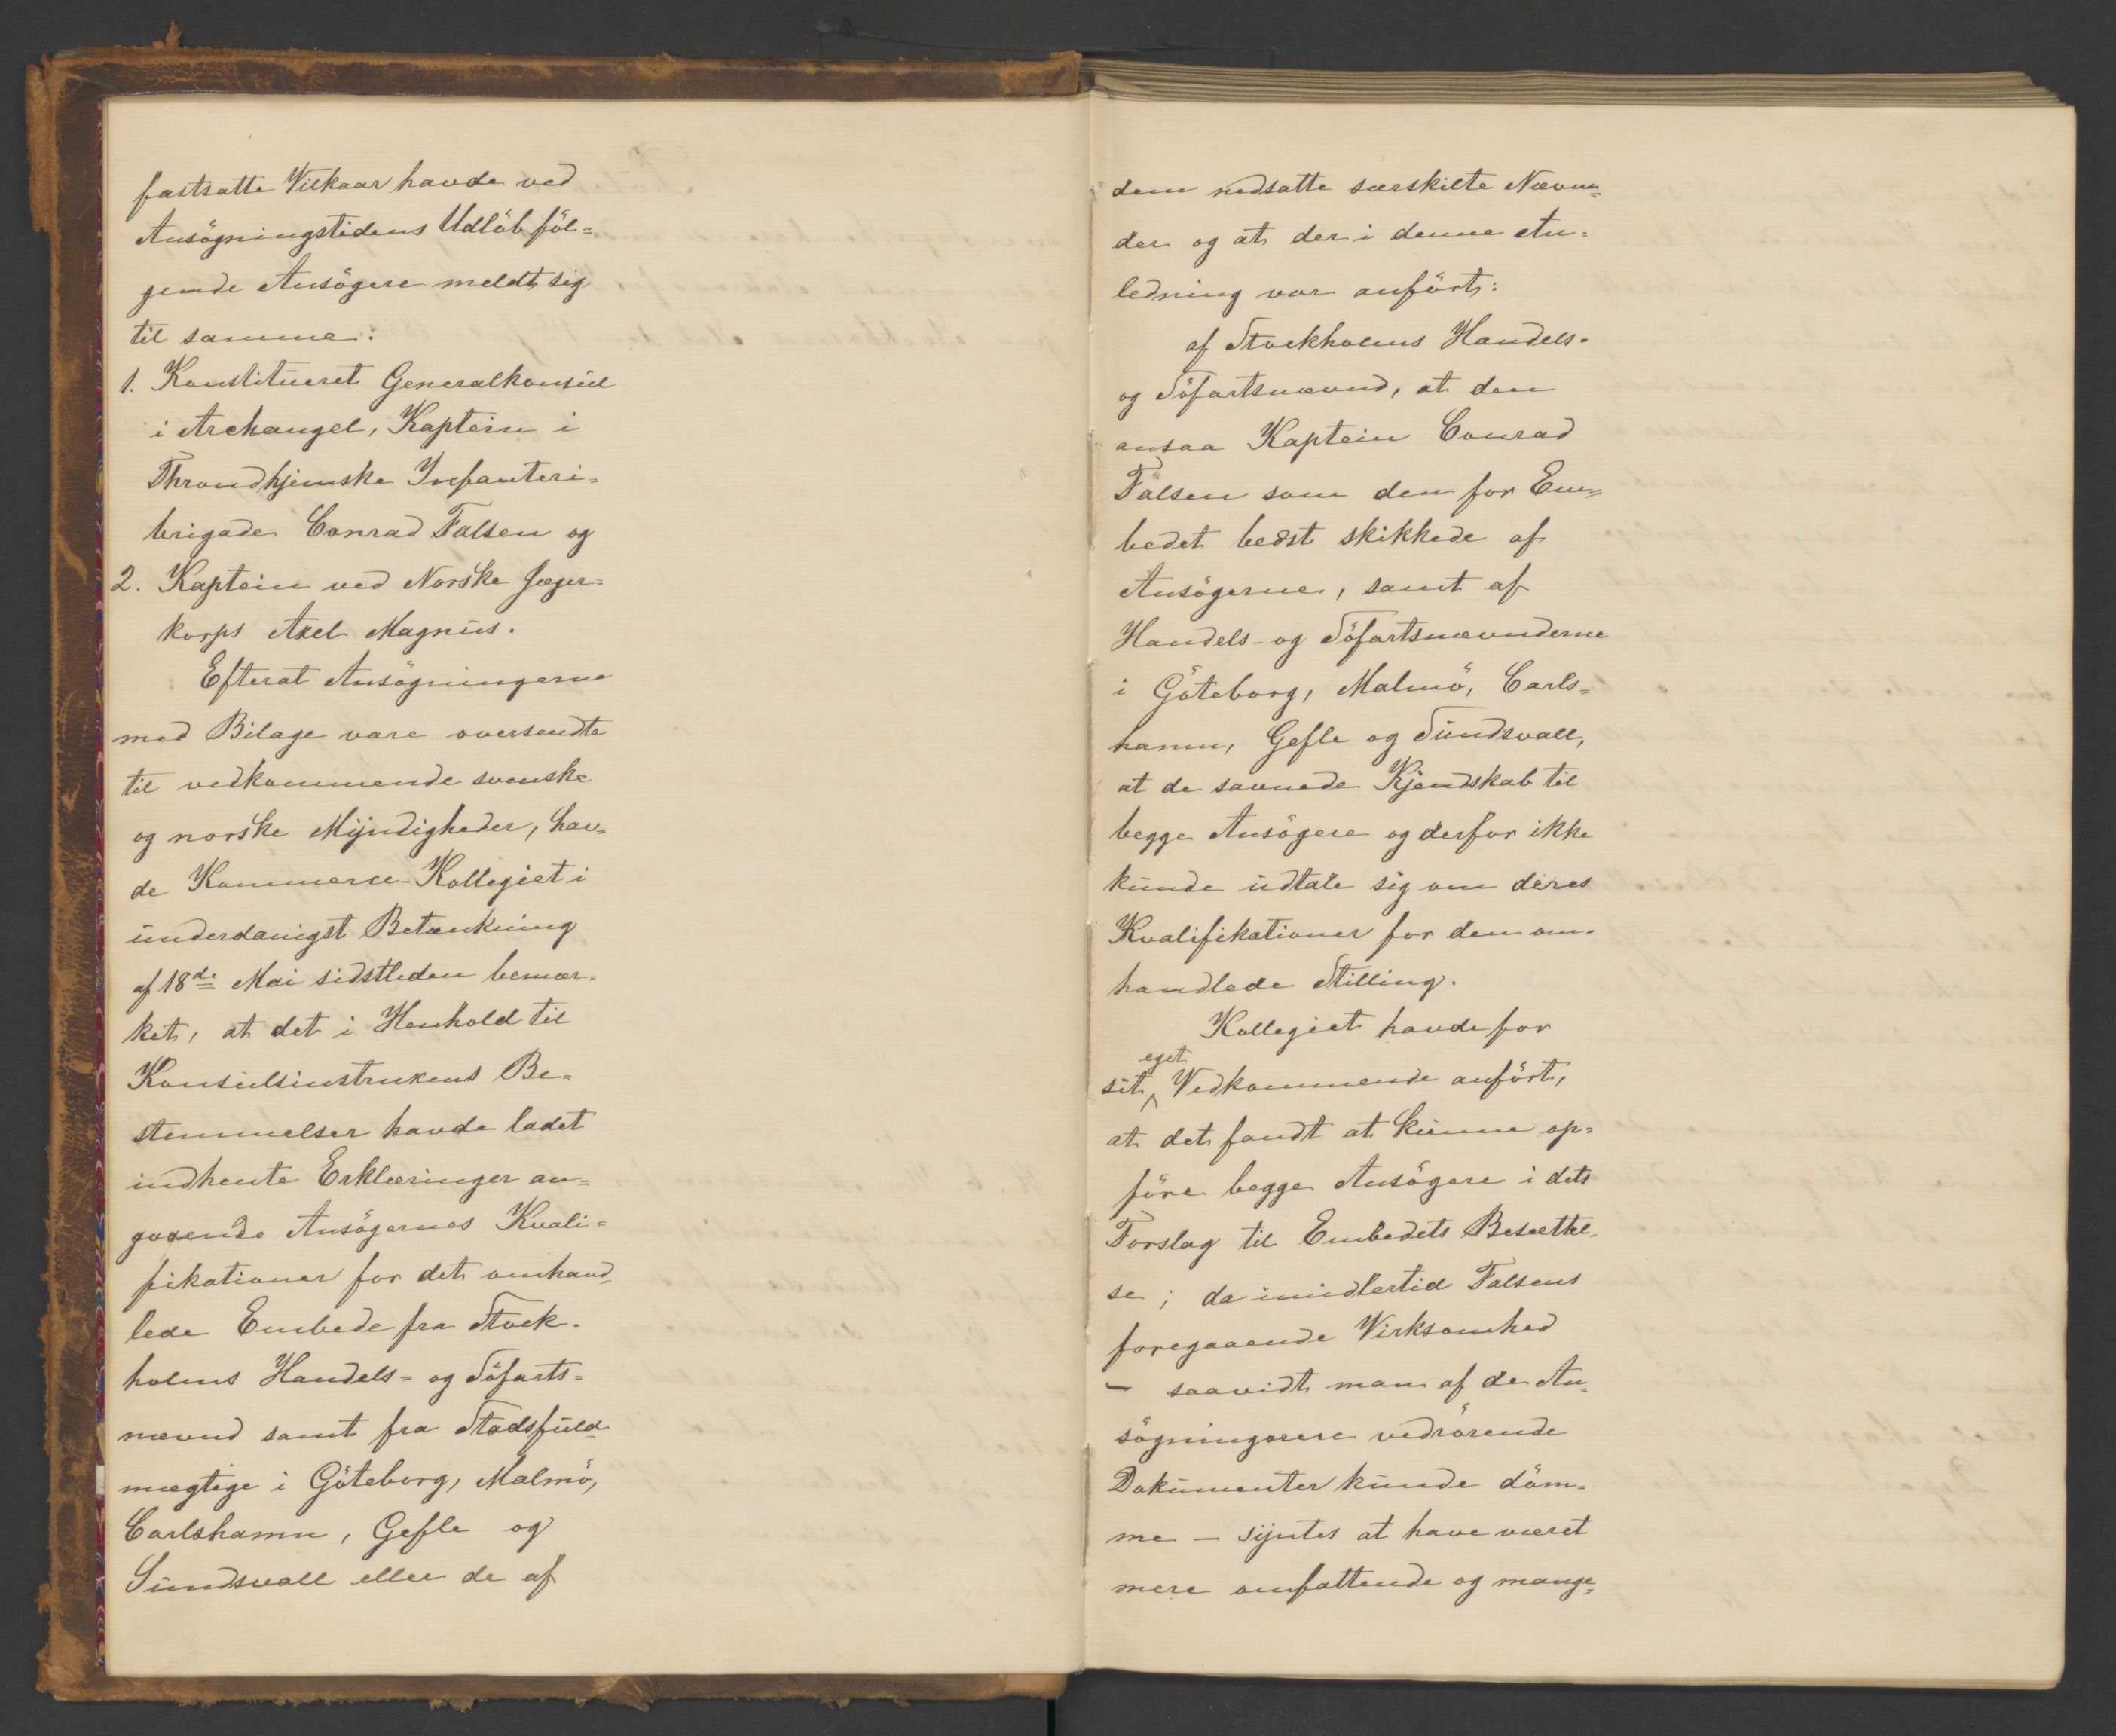 fastsatte Vilkaar havde ved
Ansögningstidens Udlöb föl=
gende Ansögere meldt sig
til samme:
1. Konstitueret Generalkonsul
i Archangel, Kaptein i
Throndhjemske Infanteri=
brigade Conrad Falsen og
2. Kaptein ved Norske Jæger=
korps Axel Magnus.
Efterat Ansögningerne
med Bilage vare oversendte
til vedkommende svenske
og norske Myndigheder, hav=
de Kommerce-Kollegiet i
underdanigst Betænkning
af 18de Mai sidstleden bemær=
ket, at det i Henhold til
Konsulsinstruxens Be=
stemmelser havde ladet
indhente Erklæringer an=
gaaende Ansögernes Kvali=
fikationer for det omhand=
lede Embede fra Stock=
holms Handels= og Söfarts=
nævnd samt fra Stadsfuld=
mægtige i Göteborg, Malmö,
Carlshamn, Gefle og
Sundsvall eller de af
dem nedsatte særskilte Nævn=
der og at der i denne An=
ledning var anfört:
af Stockholms Handels-
og Söfartsnævnd, at den
ansaa Kaptein Conrad
Falsen som den for Em=
bedet bedst skikkede af
Ansögerne, samt af
Handels- og Söfartsnævnderne
i Göteborg, Malmö, Carls=
hamn, Gefle og Sundsvall,
at de savnede Kjendskab til
begge Ansögere og derfor ikke
kunde udtale sig om deres
Kvalifikationer for den om=
handlede Stilling.
Kollegiet havde for
sit eget Vedkommende anfört,
at det fandt at kunne op=
före begge Ansögere i dets
Forslag til Embedets Besættel=
se; da imidlertid Falsens
foregaaende Virksomhed
– saavidt man af de An=
sögningerne vedrörende
Dokumenter kunde döm=
me – syntes at have været
mere omfattende og mange=